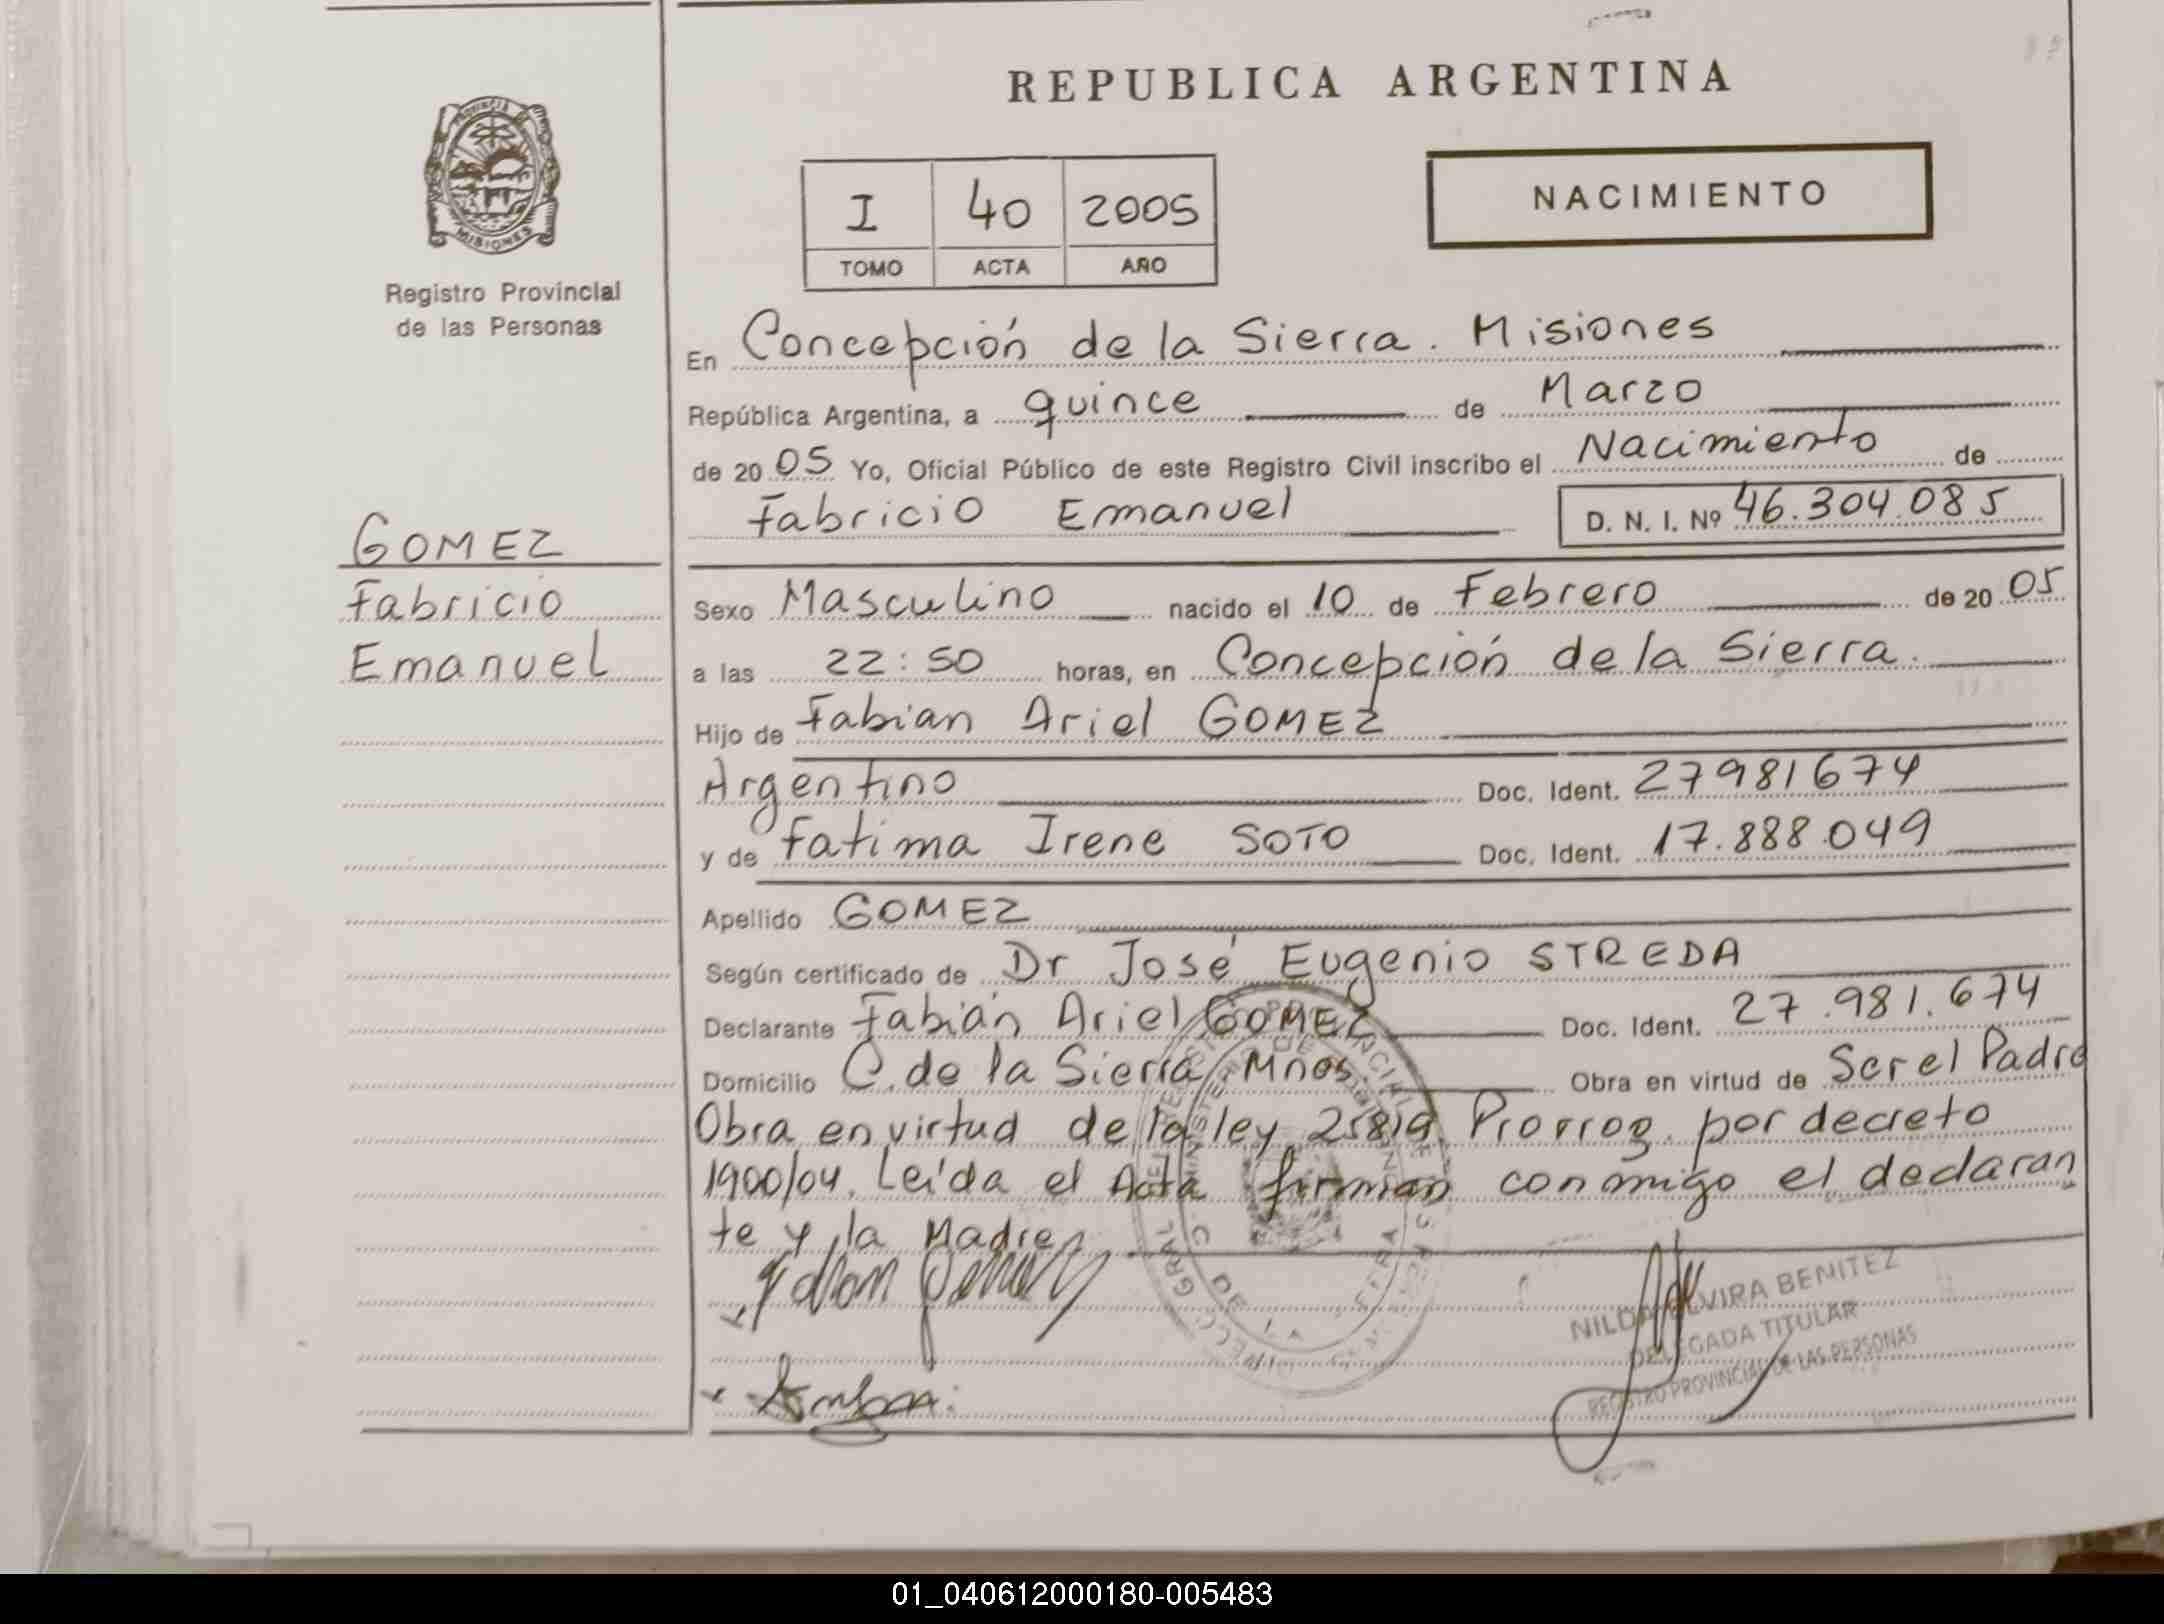 REPUBLICA ARGENTINA
PROVINCIA DE
MISIONES
Registro Provincial
de las Personas
I 40 2005
TOMO ACTA AÑO
NACIMIENTO
En Concepción de la Sierra. Misiones
República Argentina, a quince de Marzo
de 2005 Yo, Oficial Público de este Registro Civil inscribo el Nacimiento de
Fabricio Emanuel D. N. I. Nº 46.304.085
GOMEZ
Fabricio
Emanuel
Sexo Masculino nacido el 10 de Febrero de 2005
a las 22:50 horas, en Concepción de la Sierra.
Hijo de Fabian Ariel GOMEZ
Argentino Doc. Ident. 27981674
y de Fatima Irene SOTO Doc. Ident. 17.888.049
Apellido GOMEZ
Según certificado de Dr José Eugenio STREDA
Declarante Fabián Ariel GOMEZ Doc. Ident. 27.981.674
Domicilio C. de la Sierra, Mnes. Obra en virtud de Ser el Padre
Obra en virtud de la ley 25819. Prorrog. por decreto
1900/04. Leída el Acta firman conmigo el declaran
te y la Madre
NILDA ELVIRA BENITEZ
DELEGADA TITULAR
REGISTRO PROVINCIAL DE LAS PERSONAS
01_040612000180-005483